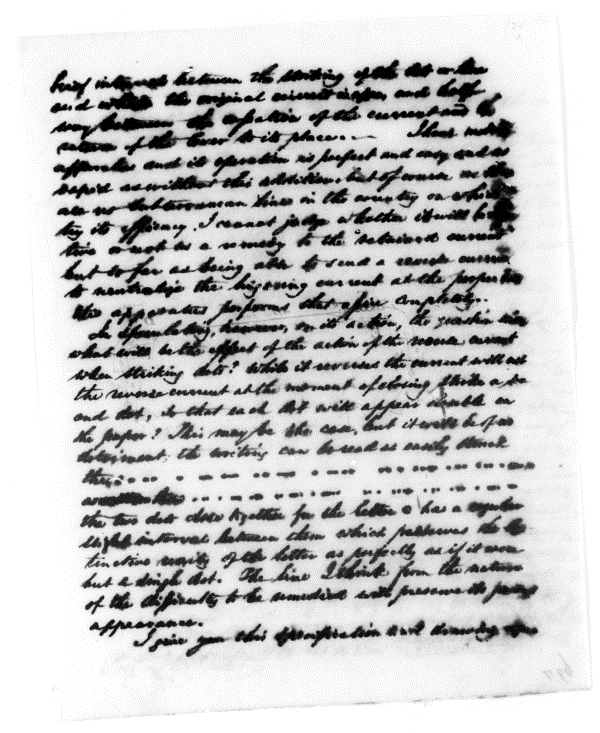 brief interval between the striking of the dot or line
and when the original current is open, and half
way between the cessation of the current and the
return of the lever to its place. — I have
apparatus and its operation is perfect and easy and as
rapid as without this addition; but of course we
are no subterranean lines in the country on which
try its efficacy. I cannot judge whether it will be
tive or not as a remedy to the "retained current"
but so far as being able to send a reverse current
to neutralize the lingering current at the proper
the apparatus performs that office completely.
In speculating, however, on its action, the question
what will be the effect of the action of the reverse current
when striking dots? While it reverses the current will not
the reverse current at the moment of closing strike a
and dot, so that each dot will appear double on
the paper? This may be the case, but it will be of no
detriment, the writing can be read as easily
thus

the two dots close together for the letter e has a
slight interval between them which preserves the
tinctive unity of the letter as perfectly as if it were
but a single dot. The line I think from the nature
of the difficulty to be remedied will preserve its
appearance.
I give you this specification and drawing